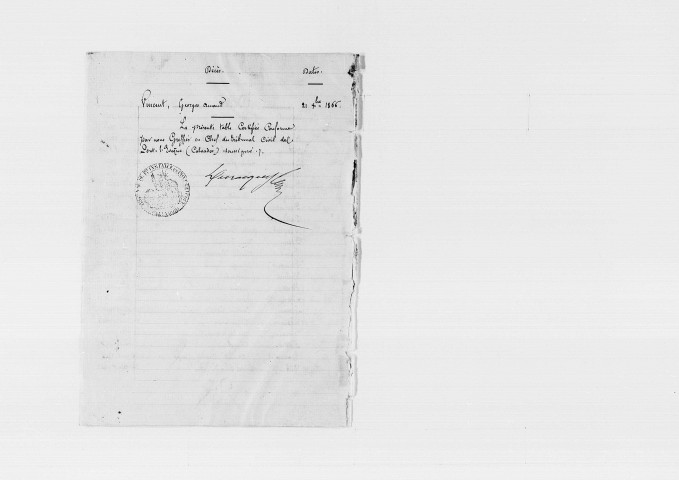 Décès. Dates.
Vincent, Georges Amand 21 1866.
La présente table Certifiée Conforme
par nous Greffier en Chef du tribunal Civil de
Pont-l'Evêque (Calvados) soussigné ./.